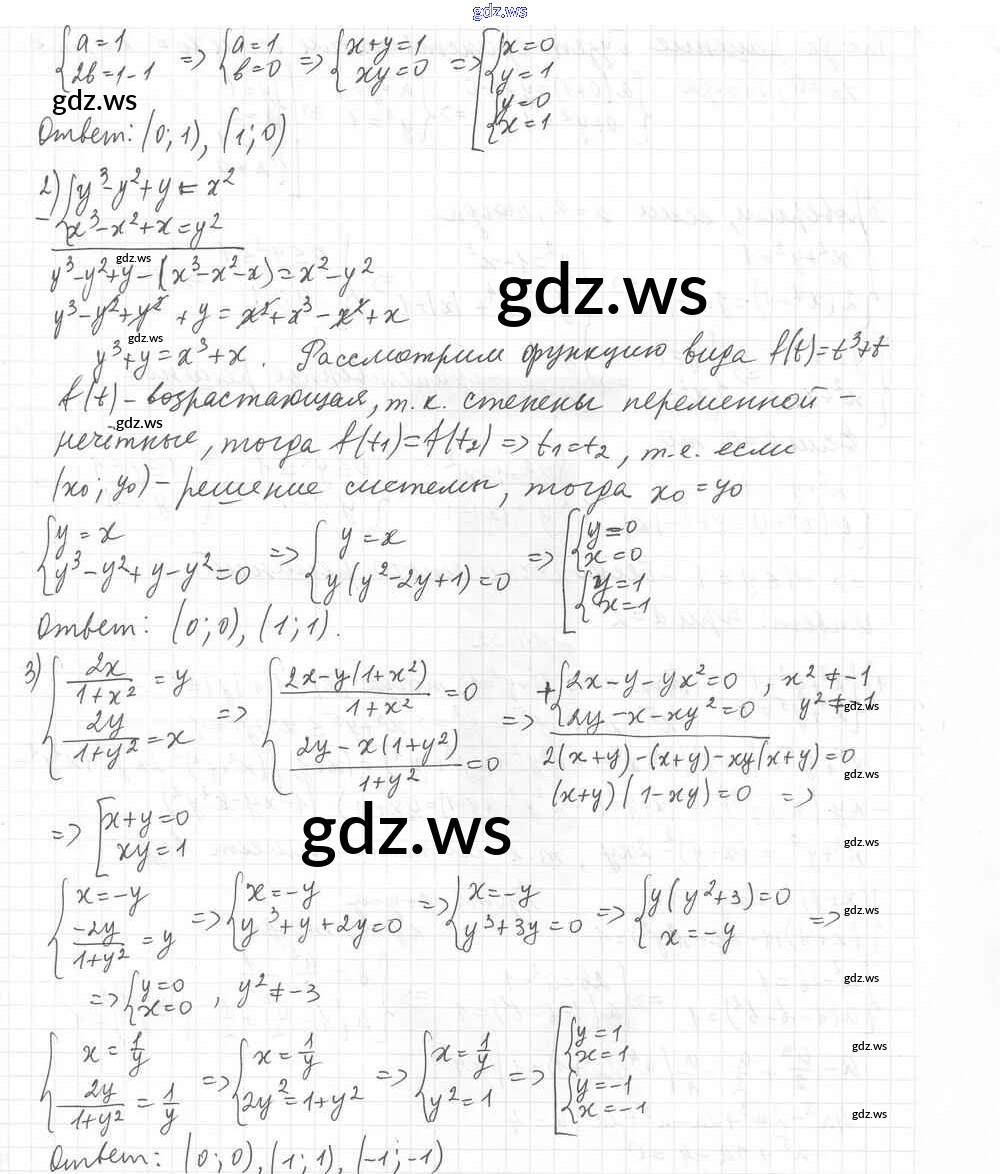 gdz.ws
{a=1 {a=1 {x+y=1 [{x=0
{2b=1-1 => {b=0 => {xy=0 => {y=1
{y=0
{x=1
gdz.ws
Ответ: (0; 1), (1; 0)
2) {y³-y²+y=x²
- {x³-x²+x=y²
gdz.ws
y³-y²+y-(x³-x²-x)=x²-y²
gdz.ws
y³-y²+y²+y=x²+x³-x²+x
gdz.ws
y³+y=x³+x. Рассмотрим функцию вида f(t)=t³+t
f(t) - возрастающая, т.к. степены переменной -
gdz.ws
нечётные, тогда f(t₁)=f(t₂) => t₁=t₂, т.е. если
(x₀; y₀) - решение системы, тогда x₀=y₀
{y=x {y=x [{y=0
{y³-y²+y-y²=0 => {y(y²-2y+1)=0 => {x=0
{y=1
{x=1
Ответ: (0; 0), (1; 1).
3) {2x/(1+x²)=y {(2x-y(1+x²))/(1+x²)=0 + {2x-y-yx²=0, x²≠-1
{2y/(1+y²)=x => {(2y-x(1+y²))/(1+y²)=0 => {2y-x-xy²=0 y²≠-1
gdz.ws
2(x+y)-(x+y)-xy(x+y)=0
gdz.ws
(x+y)(1-xy)=0 =>
=> [x+y=0
[xy=1
gdz.ws
gdz.ws
{x=-y {x=-y {x=-y {y(y²+3)=0
{-2y/(1+y²)=y => {y³+y+2y=0 => {y³+3y=0 => {x=-y =>
gdz.ws
gdz.ws
=> {y=0
{x=0, y²≠-3
{x=1/y {x=1/y {x=1/y [{y=1
{2y/(1+y²)=1/y => {2y²=1+y² => {y²=1 => {x=1
{y=-1
{x=-1
gdz.ws
gdz.ws
Ответ: (0; 0), (1; 1), (-1; -1)